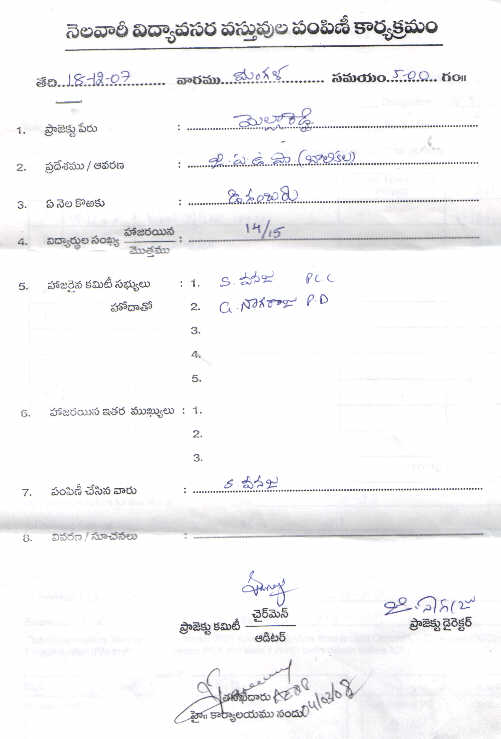 నెలవారీ విద్యావసర వస్తువుల పంపిణీ కార్యక్రమం
తేది 18-12-07 వారము మంగళ సమయం 5-00 గం॥
1. ప్రాజెక్టు పేరు :
2. ప్రదేశము / ఆవరణ : జి.ప.ఉ.పా (బాలికల)
3. ఏ నెల కొఱకు : డిశంబరు
4. విద్యార్థుల సంఖ్య హాజరయిన / మొత్తము : 14/15
5. హాజరైన కమిటీ సభ్యులు : 1. S. PCC
హోదాతో 2. G. నాగరాజు P.D
3.
4.
5.
6. హాజరయిన ఇతర ముఖ్యులు : 1.
2.
3.
7. పంపిణీ చేసిన వారు : S
8. వివరణ / సూచనలు :
ప్రాజెక్టు కమిటీ చైర్‌మెన్ / ఆడిటర్
ప్రాజెక్టు డైరెక్టర్
తనిఖీదారు
హై॥ కార్యాలయము నందు 04/02/08